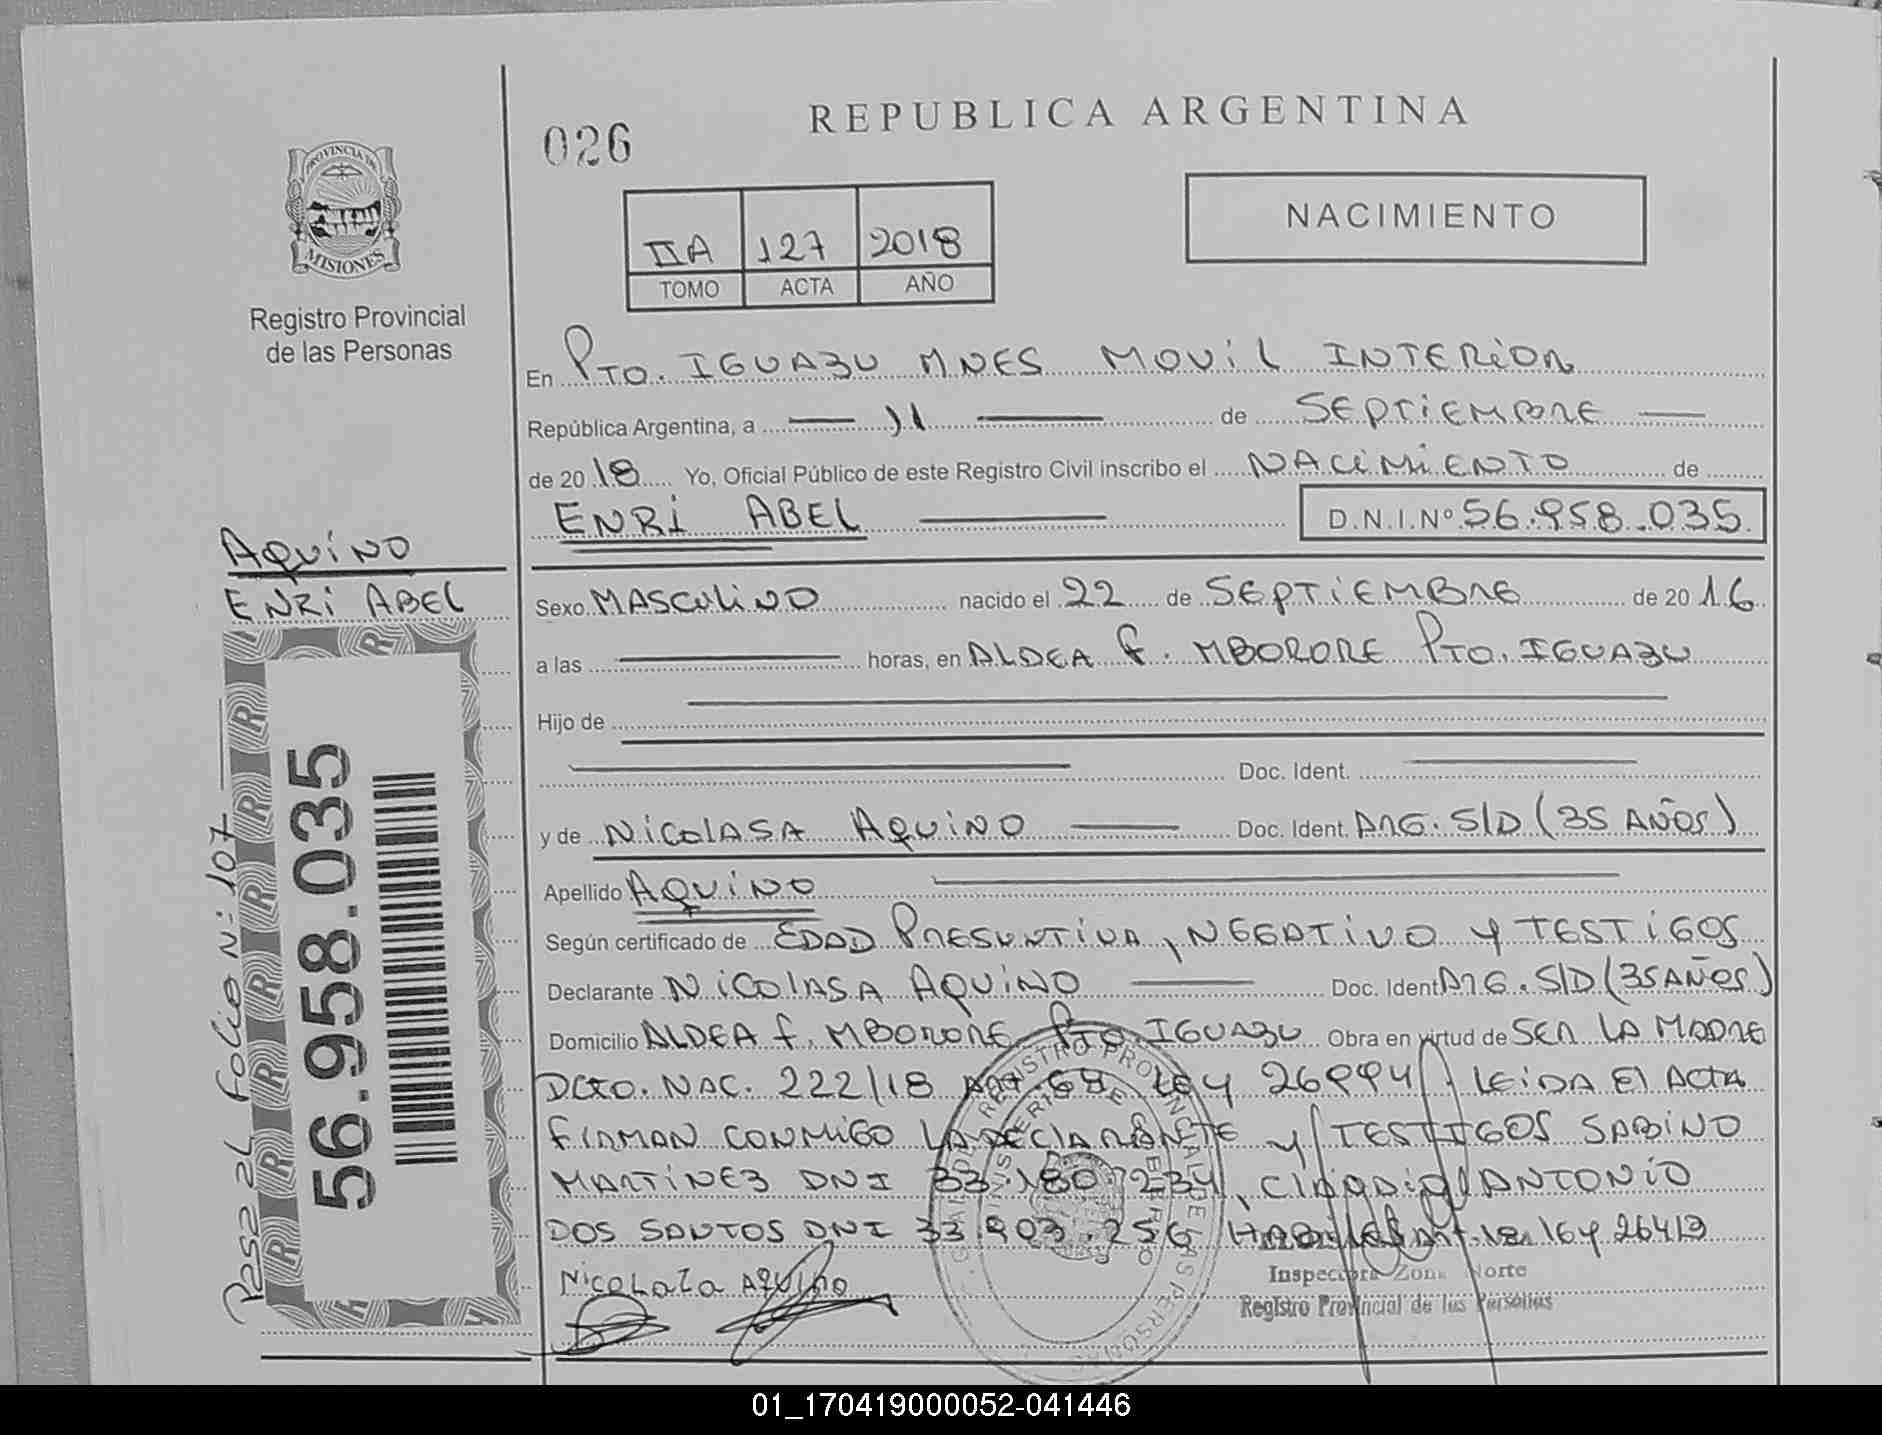 026
REPUBLICA ARGENTINA
PROVINCIA DE
MISIONES
Registro Provincial
de las Personas
IIA 127 2018
TOMO ACTA AÑO
NACIMIENTO
En PTO. IGUAZU MNES MOVIL INTERIOR
República Argentina, a 11 de SEPTIEMBRE
de 2018 Yo, Oficial Público de este Registro Civil inscribo el NACIMIENTO de
ENRI ABEL D.N.I.Nº 56.958.035
AQUINO
ENRI ABEL
Sexo MASCULINO nacido el 22 de SEPTIEMBRE de 2016
a las horas, en ALDEA F. MBORORE PTO. IGUAZU
Hijo de
Doc. Ident.
y de NICOLASA AQUINO Doc. Ident. ARG. S/D (35 AÑOS)
Apellido AQUINO
Según certificado de EDAD PRESUNTIVA, NEGATIVO Y TESTIGOS
Declarante NICOLASA AQUINO Doc. Ident ARG. S/D (35 AÑOS)
Domicilio ALDEA F. MBORORE PTO. IGUAZU Obra en virtud de SER LA MADRE
DCTO. NAC. 222/18 ART. 64 LEY 26994. LEIDA EL ACTA
FIRMAN CONMIGO LA DECLARANTE Y TESTIGOS SABINO
MARTÍNEZ DNI 33.180.234, ANTONIO
DOS SANTOS DNI 33.903.256 LEY 26413
NICOLAZA AQUINO
Inspectora Zona Norte
Registro Provincial de las Personas
Pasa al Folio N: 107
56.958.035
01_170419000052-041446